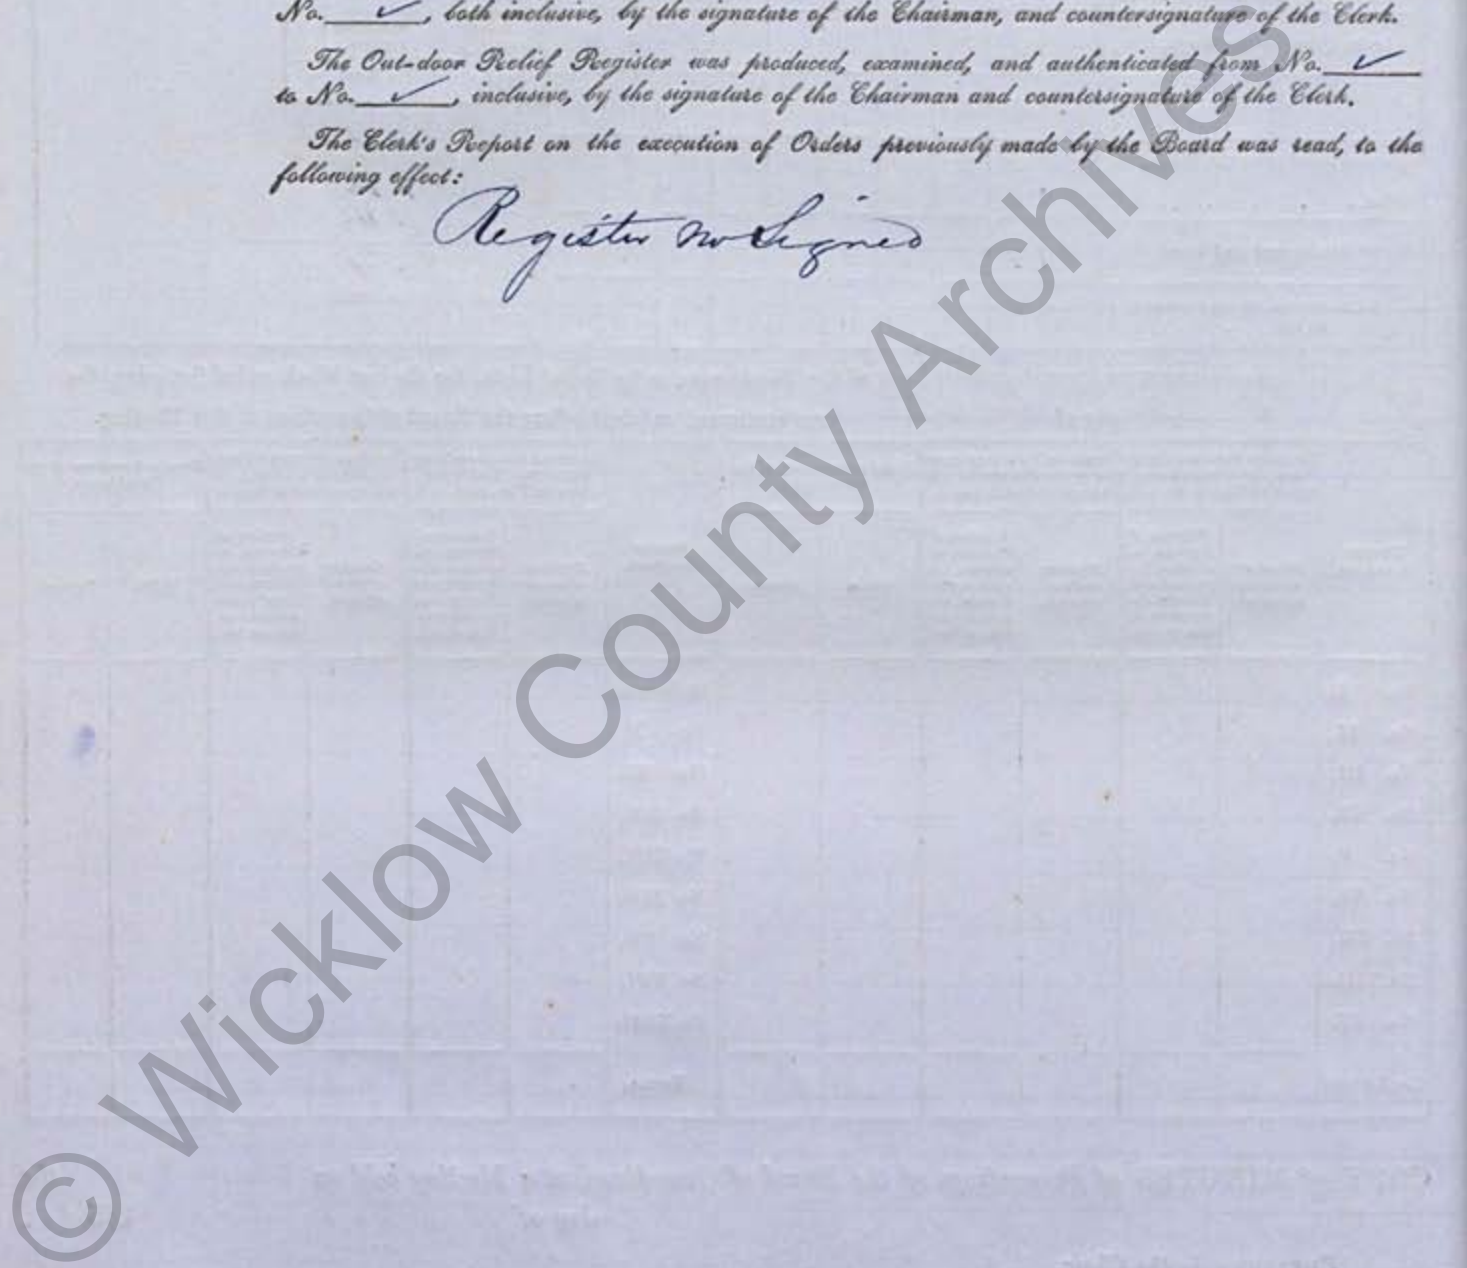 No. ✓, both inclusive, by the signature of the Chairman, and countersignature of the Clerk.
The Out-door Relief Register was produced, examined, and authenticated from No. ✓
to No. ✓, inclusive, by the signature of the Chairman and countersignature of the Clerk.
The Clerk's Report on the execution of Orders previously made by the Board was read, to the
following effect:
Register Signed
© Wicklow County Archives